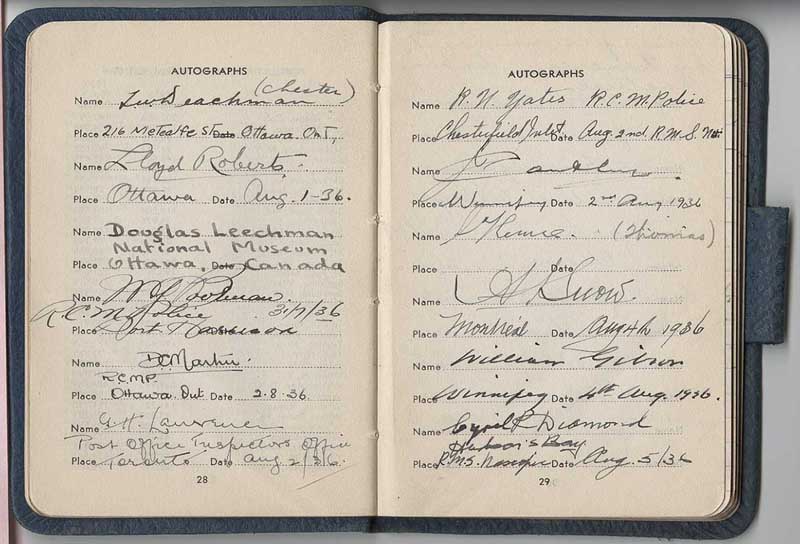 AUTOGRAPHS
(Chester)
Name
Place 216 Metcalfe St Date Ottawa. Ont,
Name Lloyd Roberts.
Place Ottawa Date Aug. 1-36.
Name Douglas Leechman
National Museum
Place Ottawa, Date Canada
Name
R.C.M. Police 31/7/36
Place Port Harrison
Name D.C. Martin.
R.C.M.P.
Place Ottawa. Ont Date 2.8.36.
Name G.H. Lawrence
Post Office Inspectors Office
Place Toronto Date Aug 2/36.
28
AUTOGRAPHS
Name R. N. Yates R.C.M. Police
Place Chesterfield Inlet Date Aug. 2nd. R.M.S.
Name
Place Winnipeg Date 2nd Aug 1936
Name (Thomas)
Place Date
Name A. Snow.
Place Montréal Date Aug 4th 1936
Name William Gibson
Place Winnipeg Date 4th Aug. 1936.
Name Cyril R Diamond
Bay
Place R.M.S. Nascopie Date Aug. 5/36
29